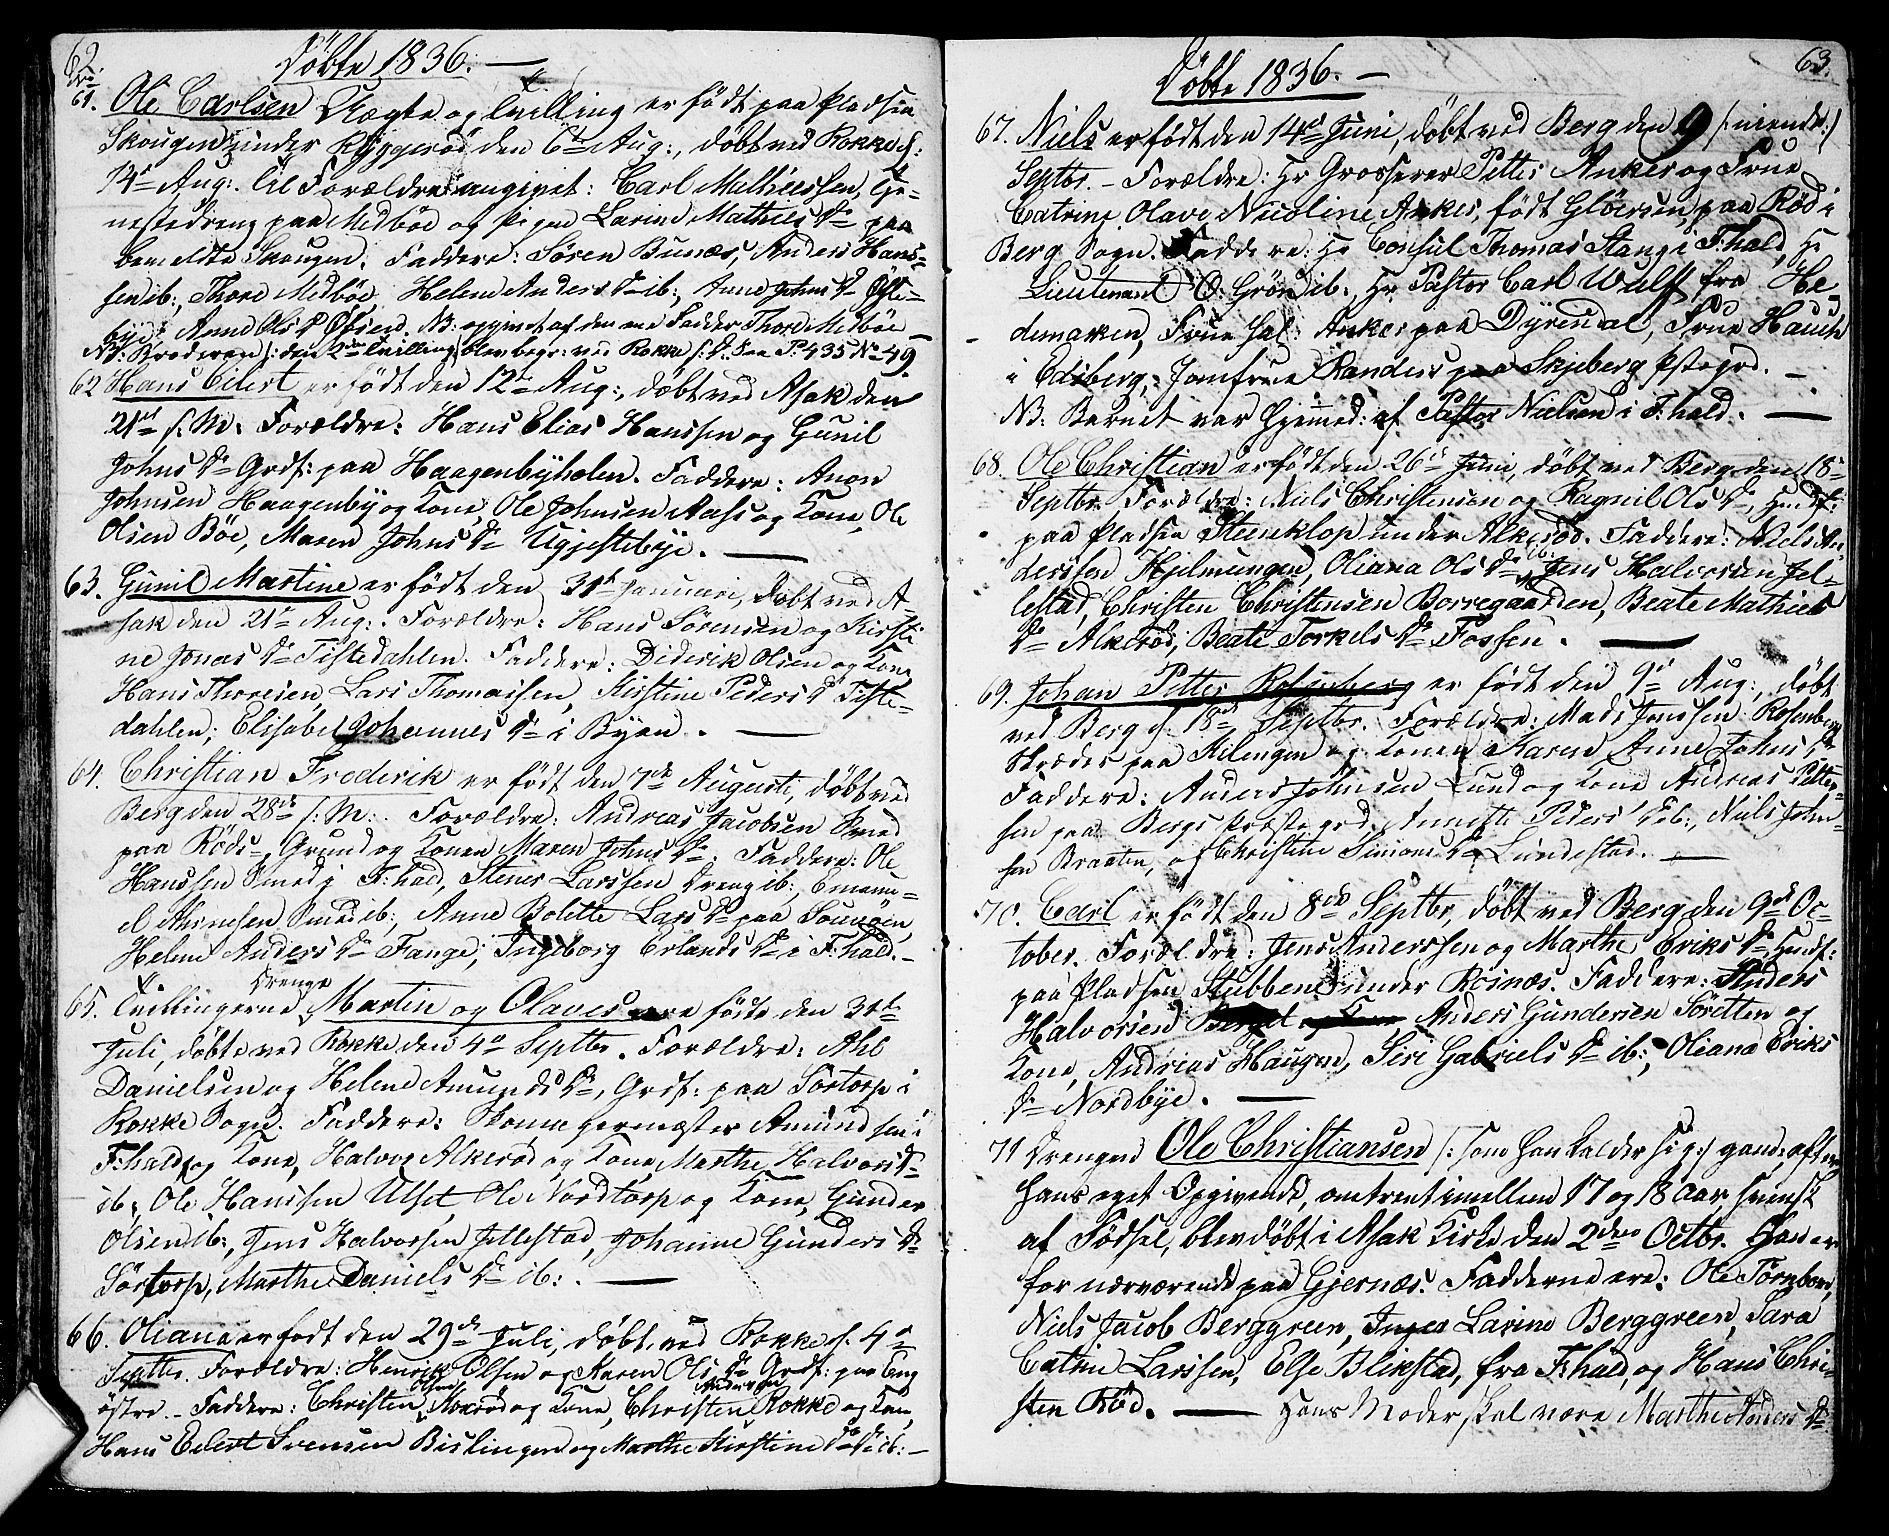 62.
Döbte 1836. —
No
61. Ole Carlsen Uægte og Tvilling er født paa Pladsen
Skougen under Ryggeröd den 6te Aug:, döbt ved Rokke d:
14de Aug: Til Forældre angivet: Carl Mathiessen, Tje-
nestedreng paa Medböe og Pigen Larine Mathies D. paa
bemeldte Skougen. Faddere: Sören Bunæs, Anders Hans-
sen ib:, Thore Medböe, Helene Anders D ib:, Anne Johns D Öste-
bye, Anne Ols D Öbsen. NB: opgivet af den ene Fadder Thore Medböe
NB: Broderen /: den 2den Tvilling blev begr: ved Rokke s: D. See P: 435 No 49
62 Hans Eilert er födt den 12te Aug:, döbt ved Asak den
21de s: M: Forældre: Hans Elias Hanssen og Gunil
Johns D Grdf: paa Haagenbyholen. Faddere: Anon
Johnsen Haagenby og Kone, Ole Johnsen Aahs og Kone, Ole
Olsen Böe, Maren Johns D Ugjestebye. —
63. Gunil Martine er födt den 31te Januari, döbt ved A-
sak den 21de Aug:. Forældre: Hans Sörensen og Kirsti
ne Jonas D Tistedahlen. Faddere: Diderik Olsen og Kone
Hans Thoresen, Lars Thomassen, Kirstine Peders D Tiste-
dahlen, Elisabet Johannes D i Byen. —
64. Christian Frederik er födt den 7de Augusti, döbt ved
Berg den 28de s: M: . Forældre: Andreas Jacobsen Smed
paa Röds-Grund og Konen Maren Johns D. Faddere: Ole
Hanssen Smed i F:hald, Stener Larssen Dreng ib:, Emanu-
el Arnesen Smed ib:, Anne Bolette Lars D paa Sounöen,
Helene Anders D Fange, Ingeborg Erlands D i F:hald. —
Drenge
65. Tvillingerne Martin og Olaves ere födte den 31te
Juli, döbte ved Rokke den 4de Septbr. Forældre: Ahl
Danielsen og Helene Amunds D, Grdf: paa Sörtorp i
Rokke Sogn. Faddere: Skomagermester Amundsen i
F:hald og Kone, Halvor Alkeröd og Kone, Marthe Halvors D
ib:, Ole Hanssen Ulset, Ole Nordtorp og Kone, Gunder
Olsen ib:, Jens Halvorsen Jellestad, Johanne Gunders D
Sörtorp, Marthe Daniels D ib: . —
66. Oliana er födt den 29de Juli, döbt ved Rokke d. 4de
Septbr. Forældre: Henrik Olsen og Karen Ols D Grdf: paa Eng
Olsen Andersen
östre. — Faddere: Christen Kokeröd og Kone, Christen Rokke og Kone,
Hans Edert Svensen Bislingen og Marthe Kirstine D ib: —
63.
Döbte 1836. —
67. Niels er födt den 14de Juni, döbt ved Berg den 9 /: niende :/
Septbr. — Forældre: Hr Grosserer Petter Anker og Frue
Catrine Olave Nicoline Anker, födt Glöersen, paa Röd i
Berg Sogn. Faddere: Hr Consul Thomas Stang i F:hald, Hr
Lieutenant O: Grön ib:, Hr Pastor Carl Wulff fra He
demarken, Frue Sal: Anker paa Dyrendal, Frue Hauch
i Edsberg, Jomfrue Randers paa Skjeberg Pstegrd. —
NB: Barnet var Hjemmed: af Pastor Nielsen i F:hald. —
68. Ole Christian er födt den 26de Juni, döbt ved Berg den 18de
Septbr. Forældre: Niels Christensen og Ragnil Ols D, Husf:
paa Pladsen Steenklop under Alkeröd. Faddere: Niels An-
ib:
derssen Hjelmungen, Oliana Ols D, Jens Halvorsen Jel-
lestad, Christen Christensen Borregaarden, Beate Mathies
D Alkeröd, Beate Torkels D Fossen. —
69. Johan Petter Rosenberg er födt den 9de Aug:, döbt
ved Berg d. 18de Septbr. Forældre: Mads Jonssen Rosenberg
Skræder paa Kilengen og Konen Karen Anne Johns D
Faddere: Anders Johnsen Lund og Kone Andreas Petter-
sen paa Bergs Præstegrd. Annette Peders D ib:, Niels John-
sen Braaten, og Christine Simons D Lundestad. —
70. Carl er födt den 8de Septbr, döbt ved Berg den 9de Oc-
tober. Forældre: Jens Anderssen og Marthe Eriks D Husf:
paa Pladsen Stubben under Rosnæs. Faddere: Anders
Halvorsen Berget, Anders Gundersen Söretten og
Kone, Andreas Haugen, Siri Gabriels D ib:, Oliana Eriks
D Nordbye. —
71 Drengen Ole Christiansen /: som han kalder sig :/ gand: efter
hans eget Opgivende, omtrent imellem 17 og 18 Aar, svensk
af Födsel, blev döbt i Asak Kirke den 2den Octbr. Han er
for nærværende paa Gjernæs. Fadderne ere: Ole Tornberg,
Niels Jacob Berggreen, Inger Larine Berggreen, Sara
Catrine Larssen, Else Blikstad, fra F:hald, og Hans Chri-
sten Röd. — Hans Moder skal være Marthe Anders D